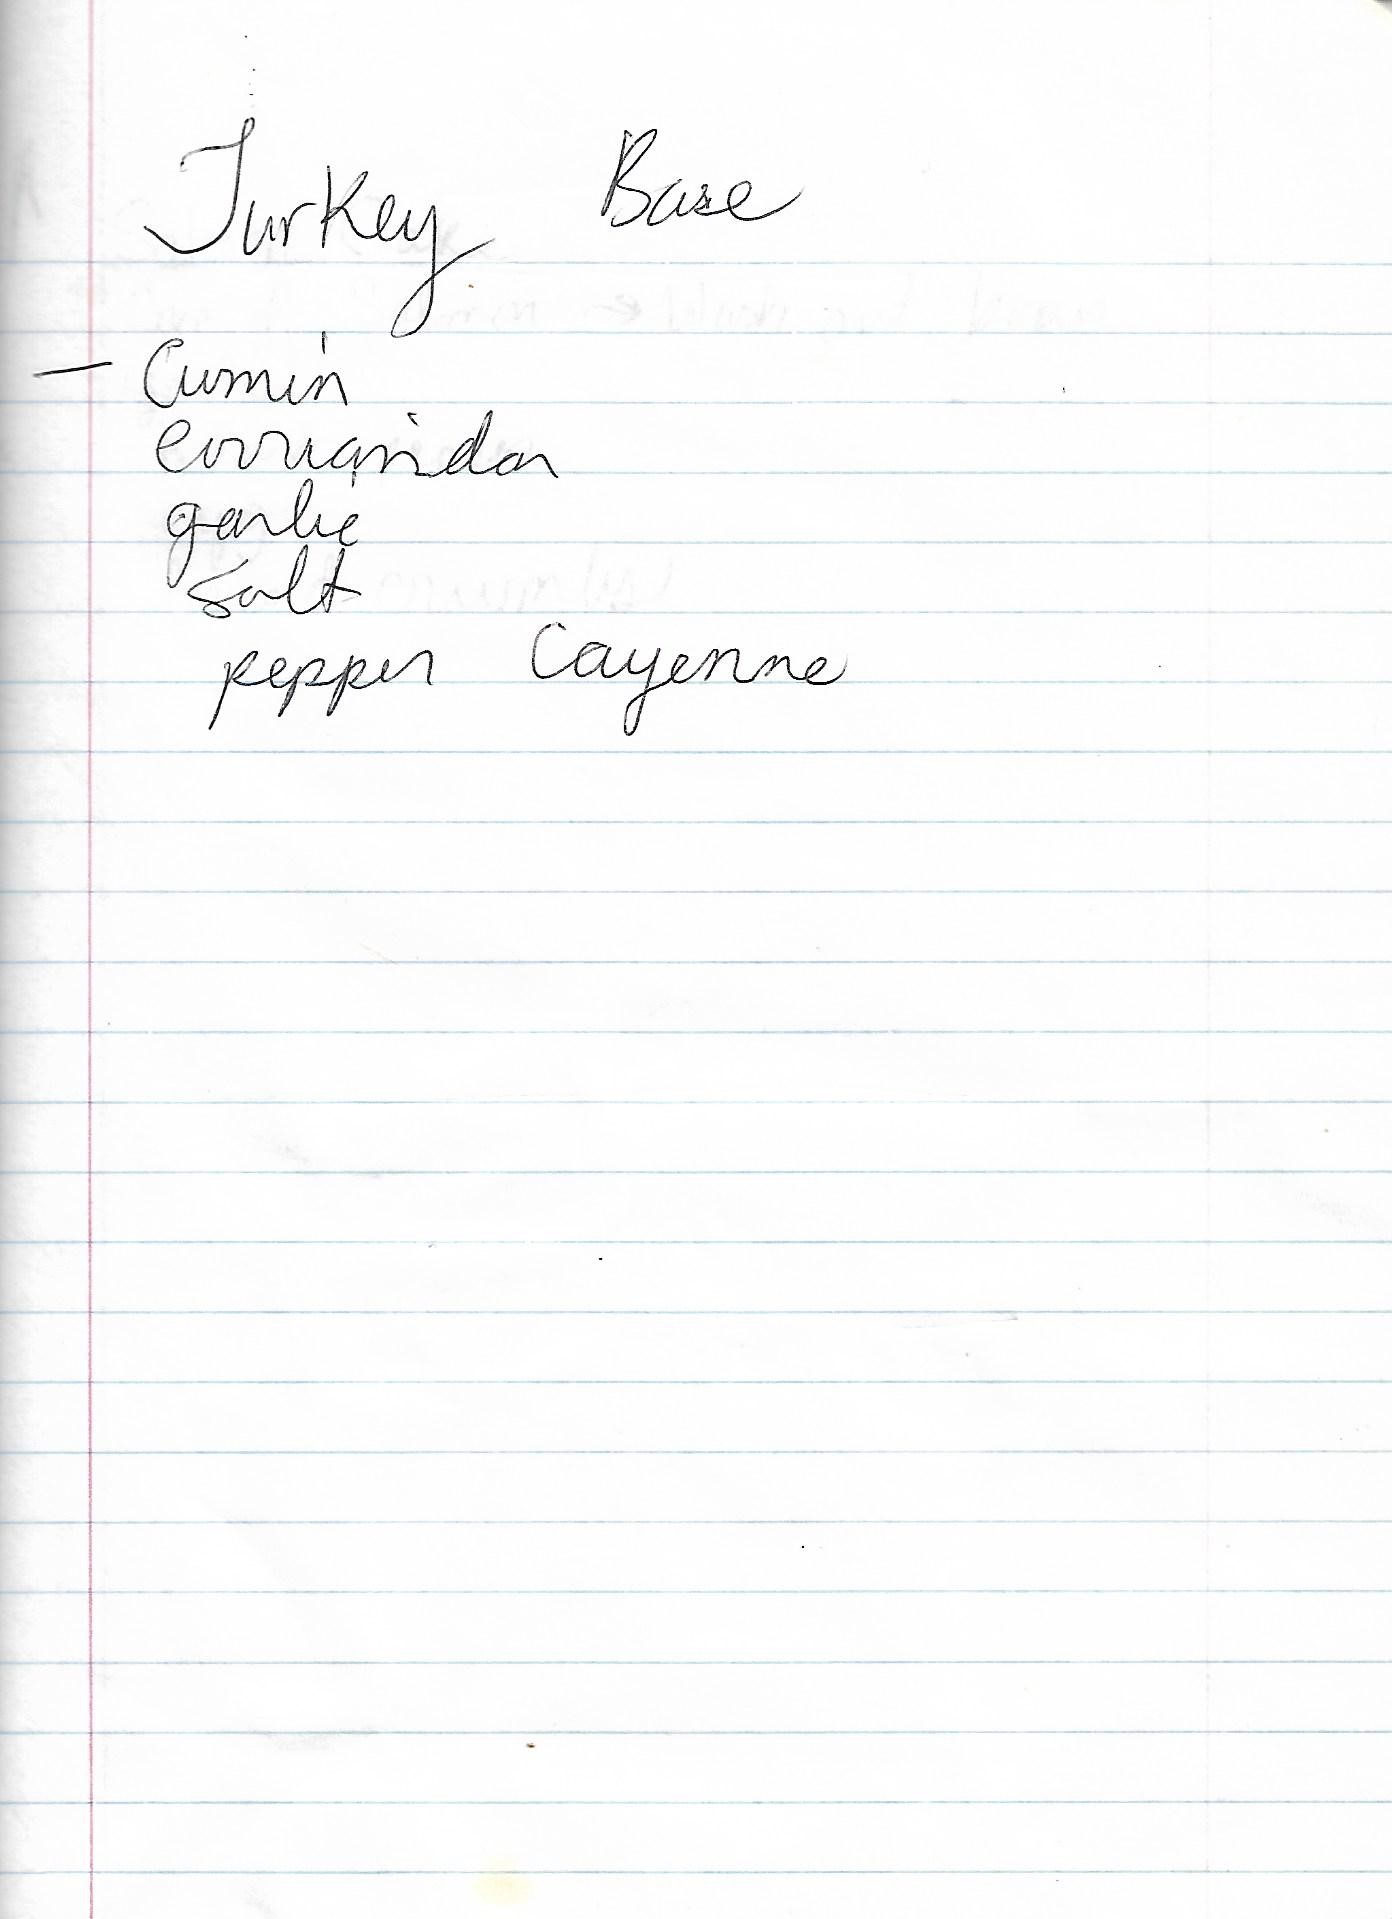 Turkey Base
- Cumin
corriandor
garlic
salt
pepper Cayenne